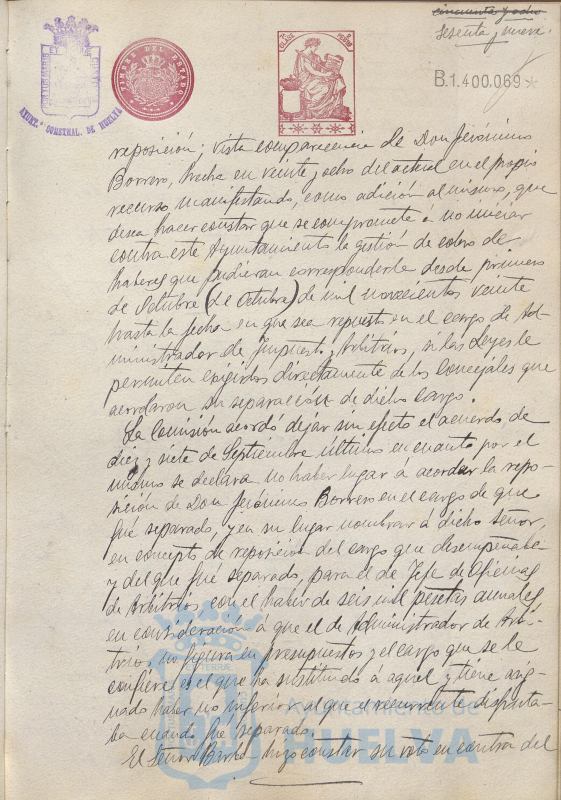 cincuenta y ocho
Sesenta y nueve.
B.1.400.069
7ª CLASE
TIMBRE DEL ESTADO
AYUNT.º CONSTNAL. DE HUELVA
reposición; vista comparecencia de Don Jerónimo
Borrero, fecha en veinte y ocho del actual en el propio
recurso manifestando, como adición al mismo, que
desea hacer constar que se compromete a no iniciar
contra este Ayuntamiento la gestión de cobro de
haberes que pudieran corresponderle desde primero
de Octubre (de Octubre) de mil novecientos veinte
hasta la fecha en que sea repuesto en el cargo de Ad-
ministrador de Impuestos y Arbitrios, si las Leyes le
permiten exigirlos directamente de los Concejales que
acordaron su separación de dicho cargo.
La Comisión acordó dejar sin efecto el acuerdo de
diez y siete de Septiembre último en cuanto por el
mismo se declara no haber lugar á acordar la repo-
sición de Don Jerónimo Borrero en el cargo de que
fué separado, y en su lugar nombrar á dicho señor,
en concepto de reposición del cargo que desempeñaba
y del que fué separado, para el de Jefe de Oficinas
de Arbitrios, con el haber de seis mil pesetas anuales
en consideración á que el de Administrador de Arbi-
trios, no figura en presupuestos y el cargo que se le
confiere es el que ha sustituido á aquel y tiene asig-
nado haber no inferior al que el recurrente disfruta-
ba cuando fué separado.
El Señor hizo constar su voto en contra del
Ayuntamiento de
HUELVA